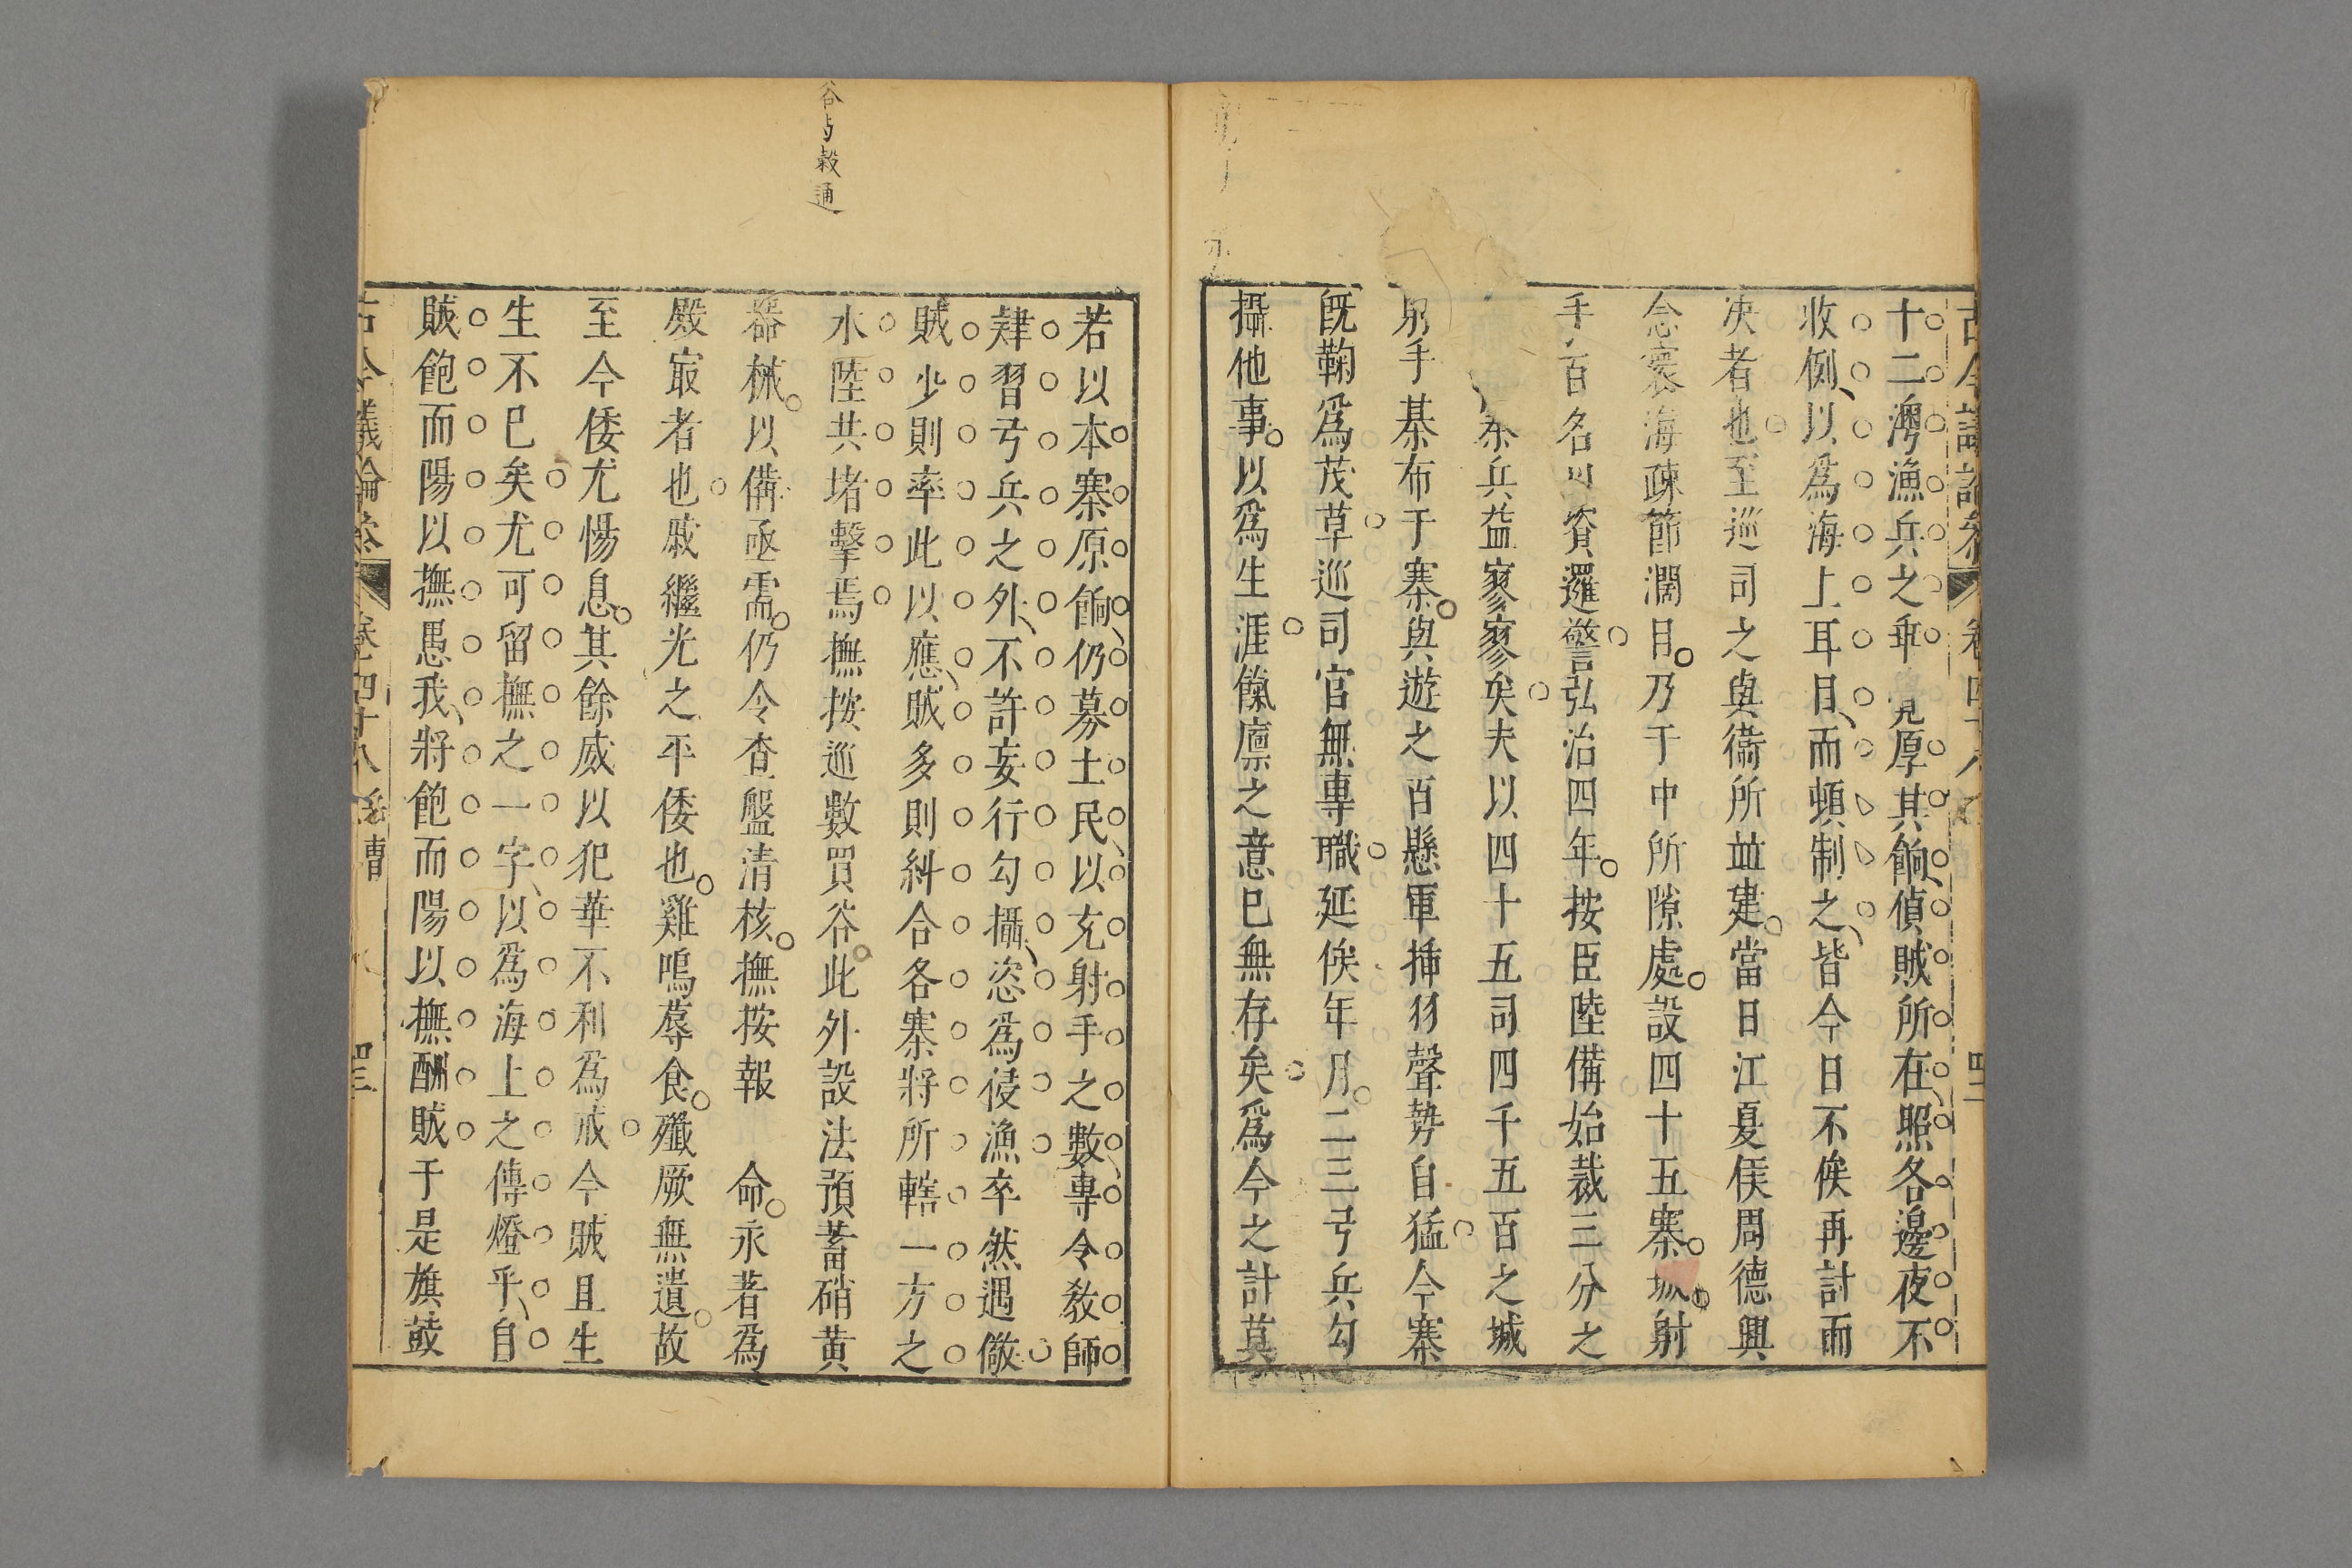 十二灣漁兵之乖覺厚其餉偵賊所在照各邊夜不
收例以爲海上耳目而頓制之皆今日不俟再計而
决者也至巡司之與衞所並建當日江夏侯周德興
念寰海疎節濶目乃于中所隙處設四十五寨城射
手百名以資邏警弘治四年按臣陸備始裁三分之
兵益寥寥矣夫以四十五司四千五百之城
射手棊布于寨與遊之百懸軍揷羽聲勢自猛今寨
旣鞠爲茂草巡司官無專職延俟年月二三弓兵勾
攝他事以爲生涯餼廪之意已無存矣爲今之計莫
古今議論叅
卷四十八
四二
若以本寨原餉仍募土民以充射手之數專令敎師
肄習弓兵之外不許妄行勾攝恣爲侵漁卒然遇儆
賊少則率此以應賊多則糾合各寨將所轄一方之
水陸共堵擊焉撫按巡數買谷此外設法預蓄硝黃
器械以備亟需仍令查盤清核撫按報 命永著爲
殿㝡者也戚繼光之平倭也雞鳴蓐食殲厥無遺故
至今倭尤惕息其餘威以犯華不利爲戒今賊且生
生不已矣尤可留撫之一字以爲海上之傳燈乎自
賊飽而陽以撫愚我將飽而陽以撫酬賊于是旗鼓
古今議論叅
卷四十八
四三
谷與穀通